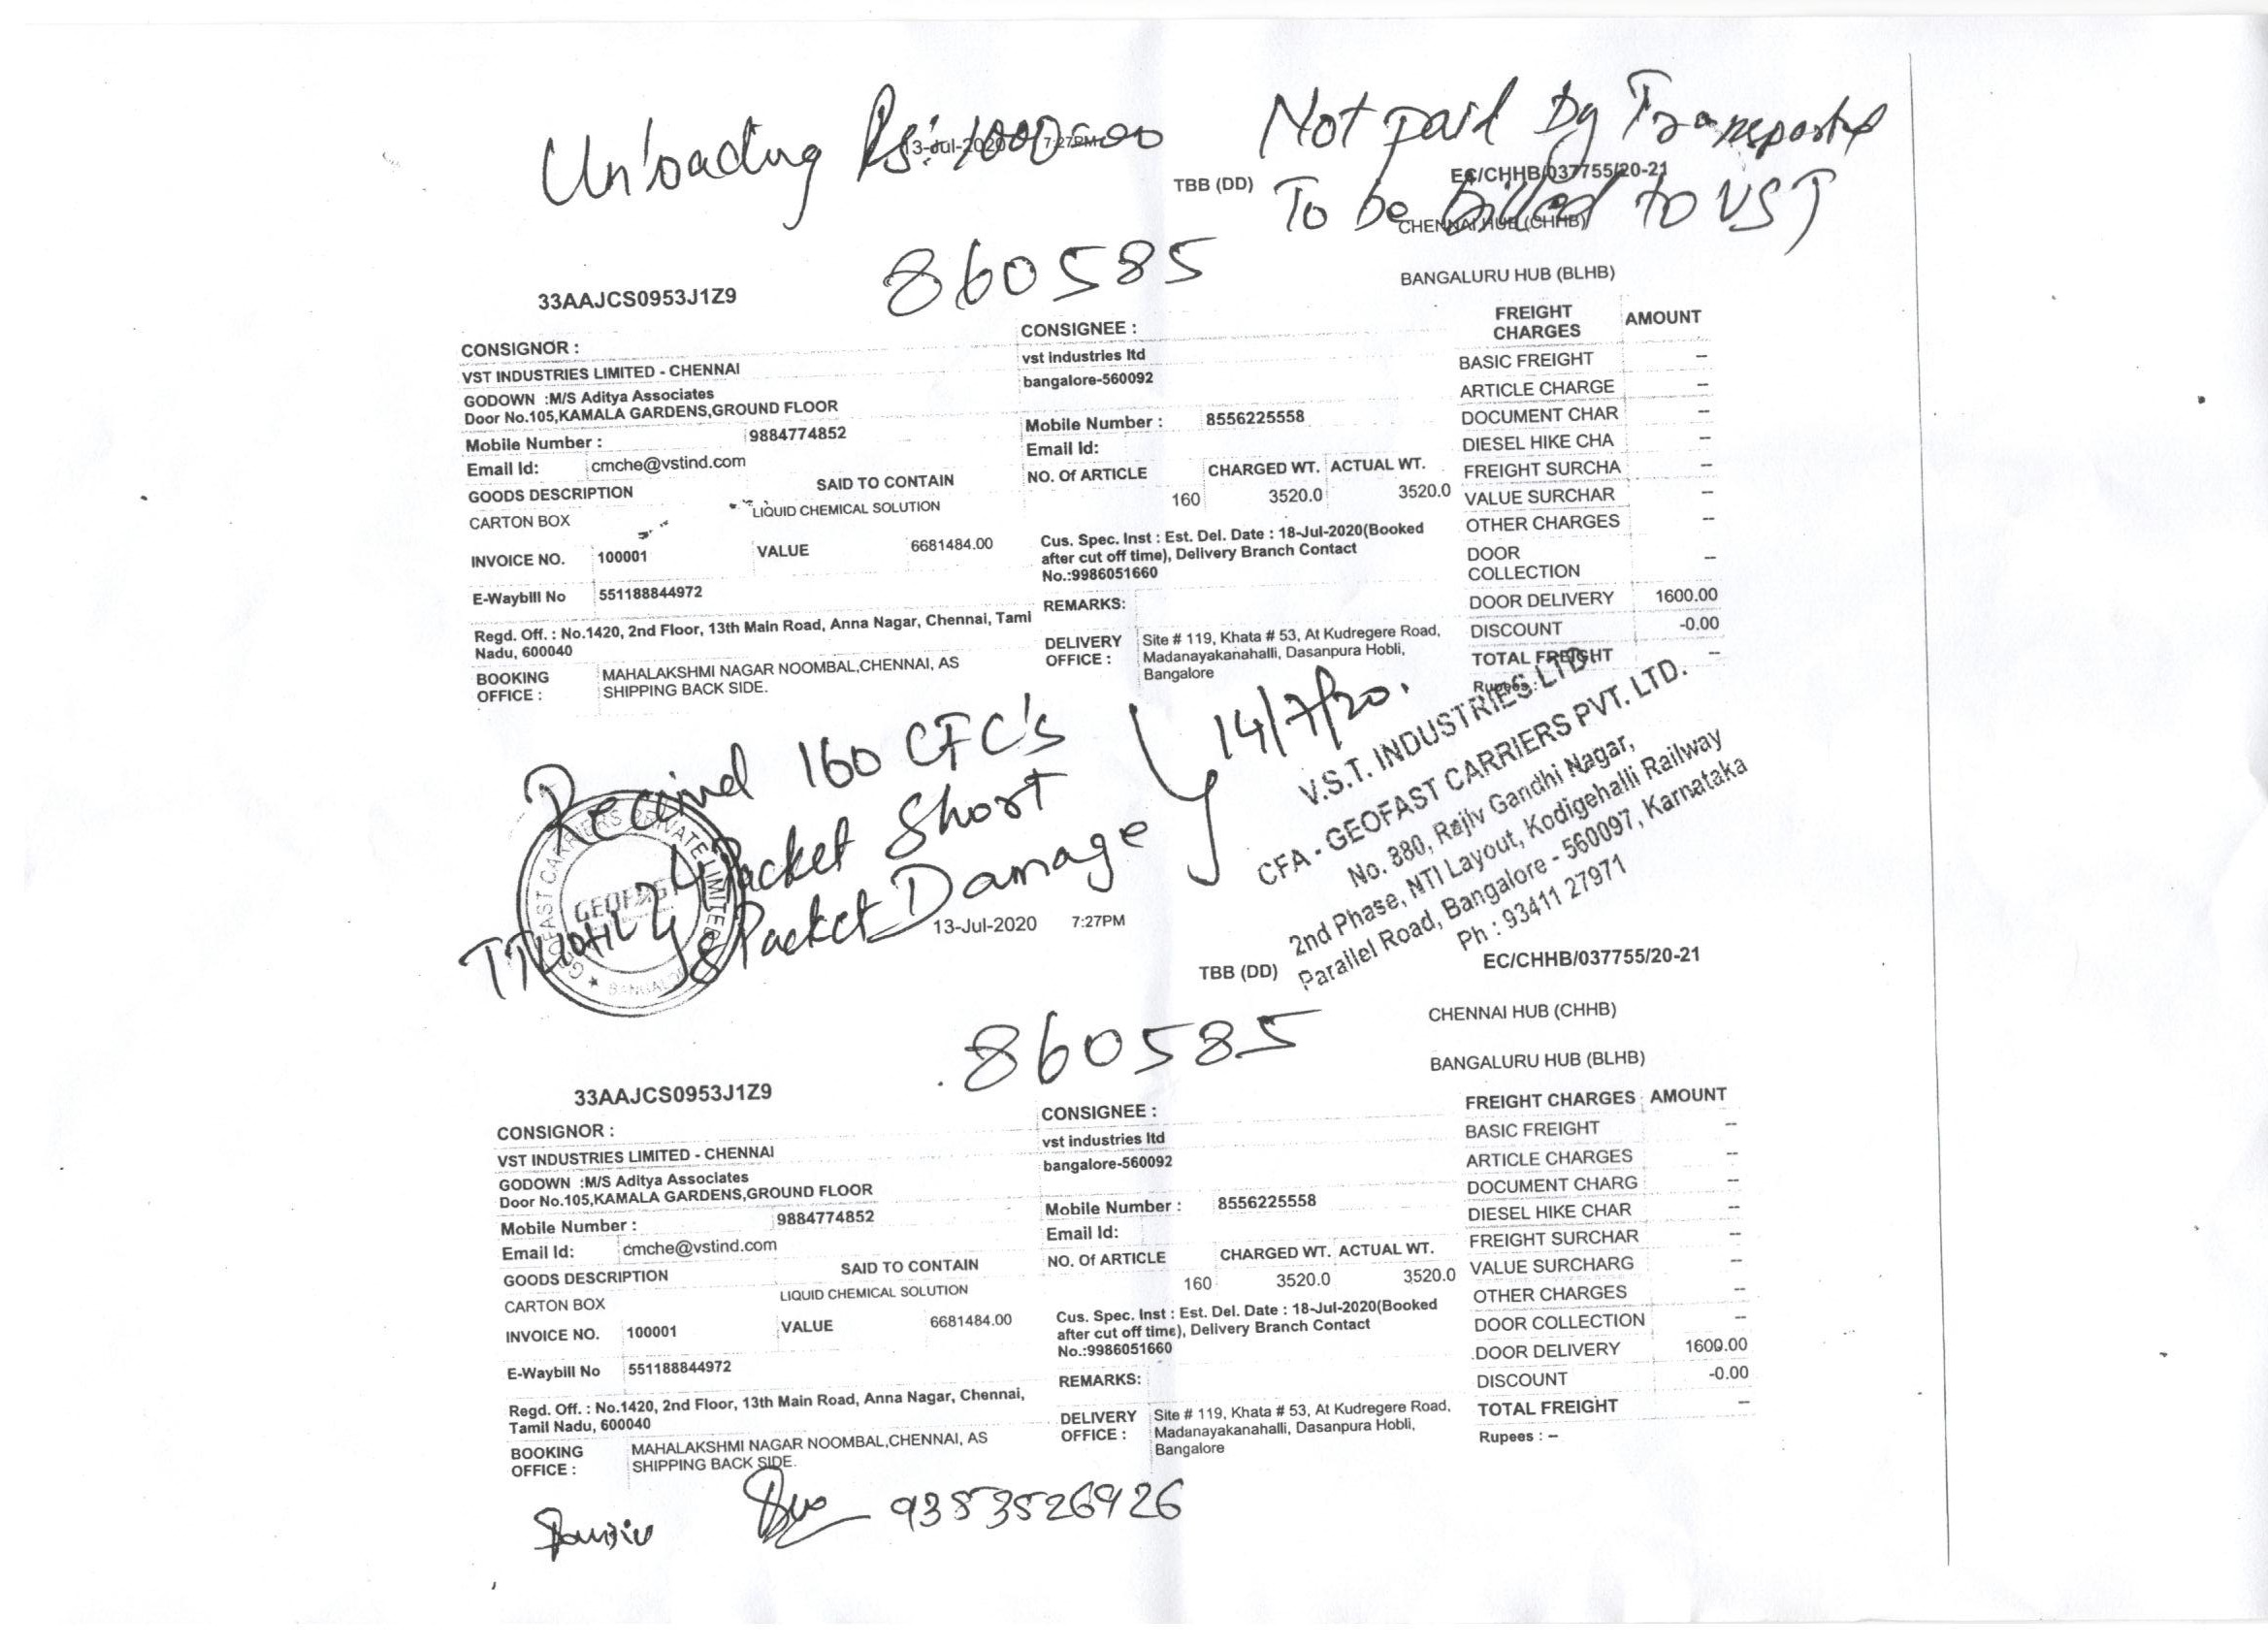 Unloading Rs: 1000=00 Not paid by Transporter
13-Jul-2020 7:27PM
TBB (DD) EC/CHHB/037755/20-21
To be billed to VST
CHENNAI HUB (CHHB)
860585
BANGALURU HUB (BLHB)
33AAJCS0953J1Z9
FREIGHT CHARGES AMOUNT
CONSIGNOR : CONSIGNEE :
VST INDUSTRIES LIMITED - CHENNAI vst industries ltd BASIC FREIGHT --
GODOWN :M/S Aditya Associates bangalore-560092 ARTICLE CHARGE --
Door No.105,KAMALA GARDENS,GROUND FLOOR DOCUMENT CHAR --
Mobile Number : 9884774852 Mobile Number : 8556225558 DIESEL HIKE CHA --
Email Id: cmche@vstind.com Email Id: FREIGHT SURCHA --
GOODS DESCRIPTION SAID TO CONTAIN NO. Of ARTICLE CHARGED WT. ACTUAL WT.
CARTON BOX LIQUID CHEMICAL SOLUTION 160 3520.0 3520.0 VALUE SURCHAR --
OTHER CHARGES --
INVOICE NO. 100001 VALUE 6681484.00 Cus. Spec. Inst : Est. Del. Date : 18-Jul-2020(Booked
after cut off time), Delivery Branch Contact
No.:9986051660
DOOR COLLECTION --
E-Waybill No 551188844972 REMARKS: DOOR DELIVERY 1600.00
Regd. Off. : No.1420, 2nd Floor, 13th Main Road, Anna Nagar, Chennai, Tami
Nadu, 600040
DISCOUNT -0.00
DELIVERY OFFICE : Site # 119, Khata # 53, At Kudregere Road,
Madanayakanahalli, Dasanpura Hobli,
Bangalore
TOTAL FREIGHT --
Rupees :
BOOKING OFFICE : MAHALAKSHMI NAGAR NOOMBAL,CHENNAI, AS
SHIPPING BACK SIDE.
Received 160 CFC's
Packet Short
8 Packet Damage
14/7/20.
GEOFAST CARRIERS PRIVATE LIMITED
GEOFAST
V.S.T. INDUSTRIES LTD.
CFA - GEOFAST CARRIERS PVT. LTD.
No. 380, Rajiv Gandhi Nagar,
2nd Phase, NTI Layout, Kodigehalli Railway
Parallel Road, Bangalore - 560097, Karnataka
Ph : 93411 27971
13-Jul-2020 7:27PM
TBB (DD) EC/CHHB/037755/20-21
CHENNAI HUB (CHHB)
860585
BANGALURU HUB (BLHB)
33AAJCS0953J1Z9
FREIGHT CHARGES AMOUNT
CONSIGNOR : CONSIGNEE :
VST INDUSTRIES LIMITED - CHENNAI vst industries ltd BASIC FREIGHT --
GODOWN :M/S Aditya Associates bangalore-560092 ARTICLE CHARGES --
Door No.105,KAMALA GARDENS,GROUND FLOOR DOCUMENT CHARG --
Mobile Number : 9884774852 Mobile Number : 8556225558 DIESEL HIKE CHAR --
Email Id: cmche@vstind.com Email Id: FREIGHT SURCHAR --
GOODS DESCRIPTION SAID TO CONTAIN NO. Of ARTICLE CHARGED WT. ACTUAL WT.
CARTON BOX LIQUID CHEMICAL SOLUTION 160 3520.0 3520.0 VALUE SURCHARG --
OTHER CHARGES --
INVOICE NO. 100001 VALUE 6681484.00 Cus. Spec. Inst : Est. Del. Date : 18-Jul-2020(Booked
after cut off time), Delivery Branch Contact
No.:9986051660
DOOR COLLECTION --
E-Waybill No 551188844972 DOOR DELIVERY 1600.00
REMARKS: DISCOUNT -0.00
Regd. Off. : No.1420, 2nd Floor, 13th Main Road, Anna Nagar, Chennai,
Tamil Nadu, 600040
DELIVERY OFFICE : Site # 119, Khata # 53, At Kudregere Road,
Madanayakanahalli, Dasanpura Hobli,
Bangalore
TOTAL FREIGHT --
Rupees : --
BOOKING OFFICE : MAHALAKSHMI NAGAR NOOMBAL,CHENNAI, AS
SHIPPING BACK SIDE.
9383526926